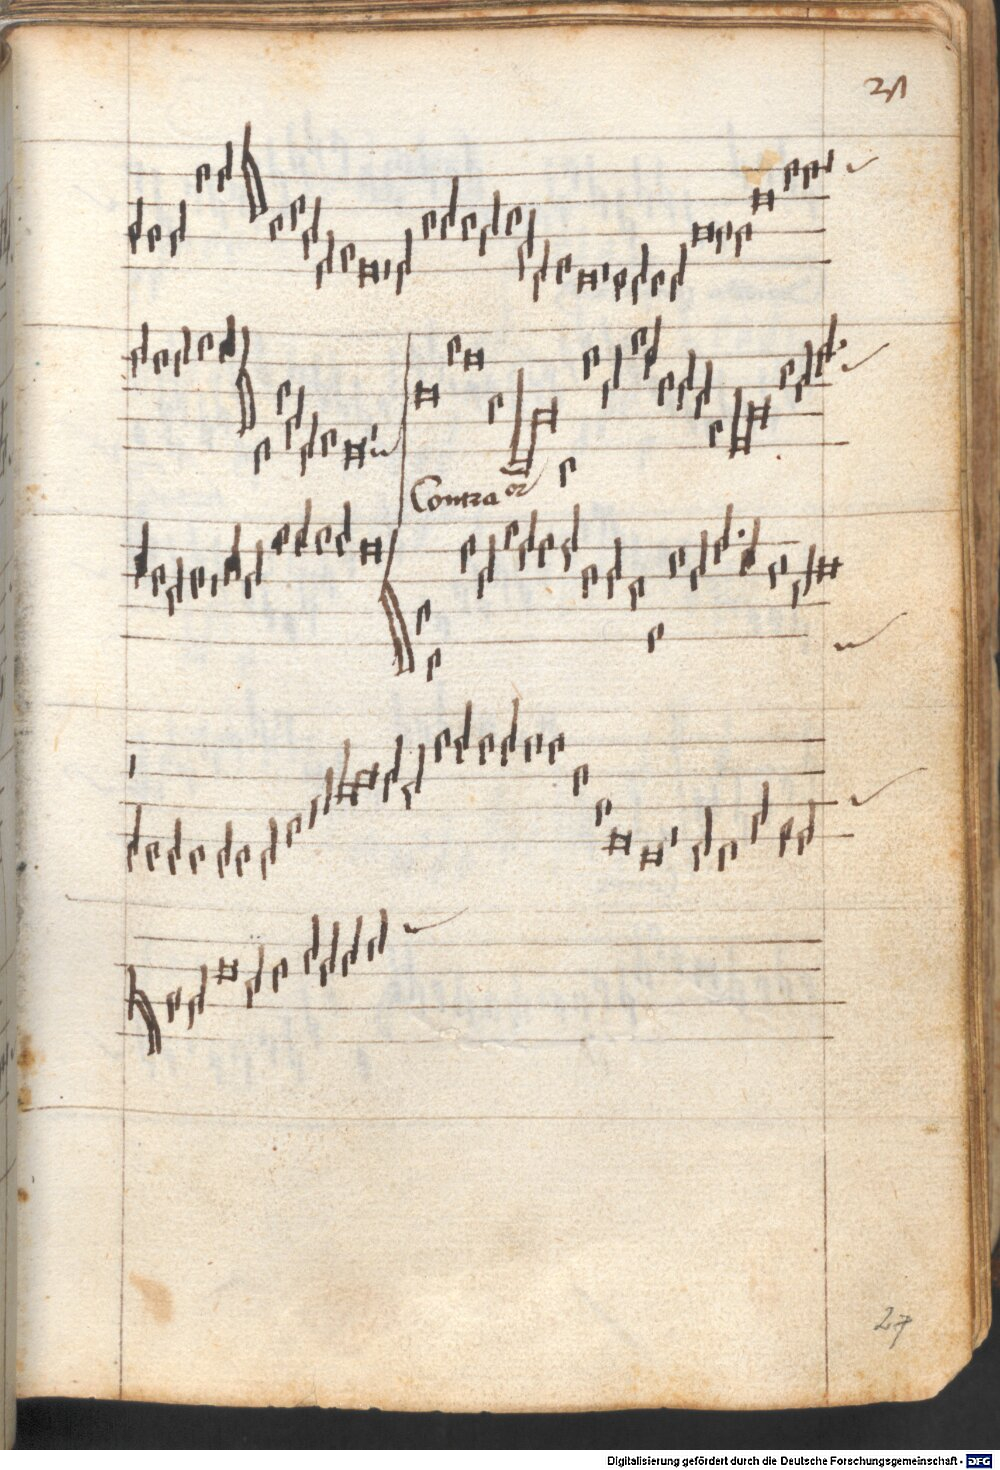 31
Contra
27
Digitalisierung gefördert durch die Deutsche Forschungsgemeinschaft - DFG